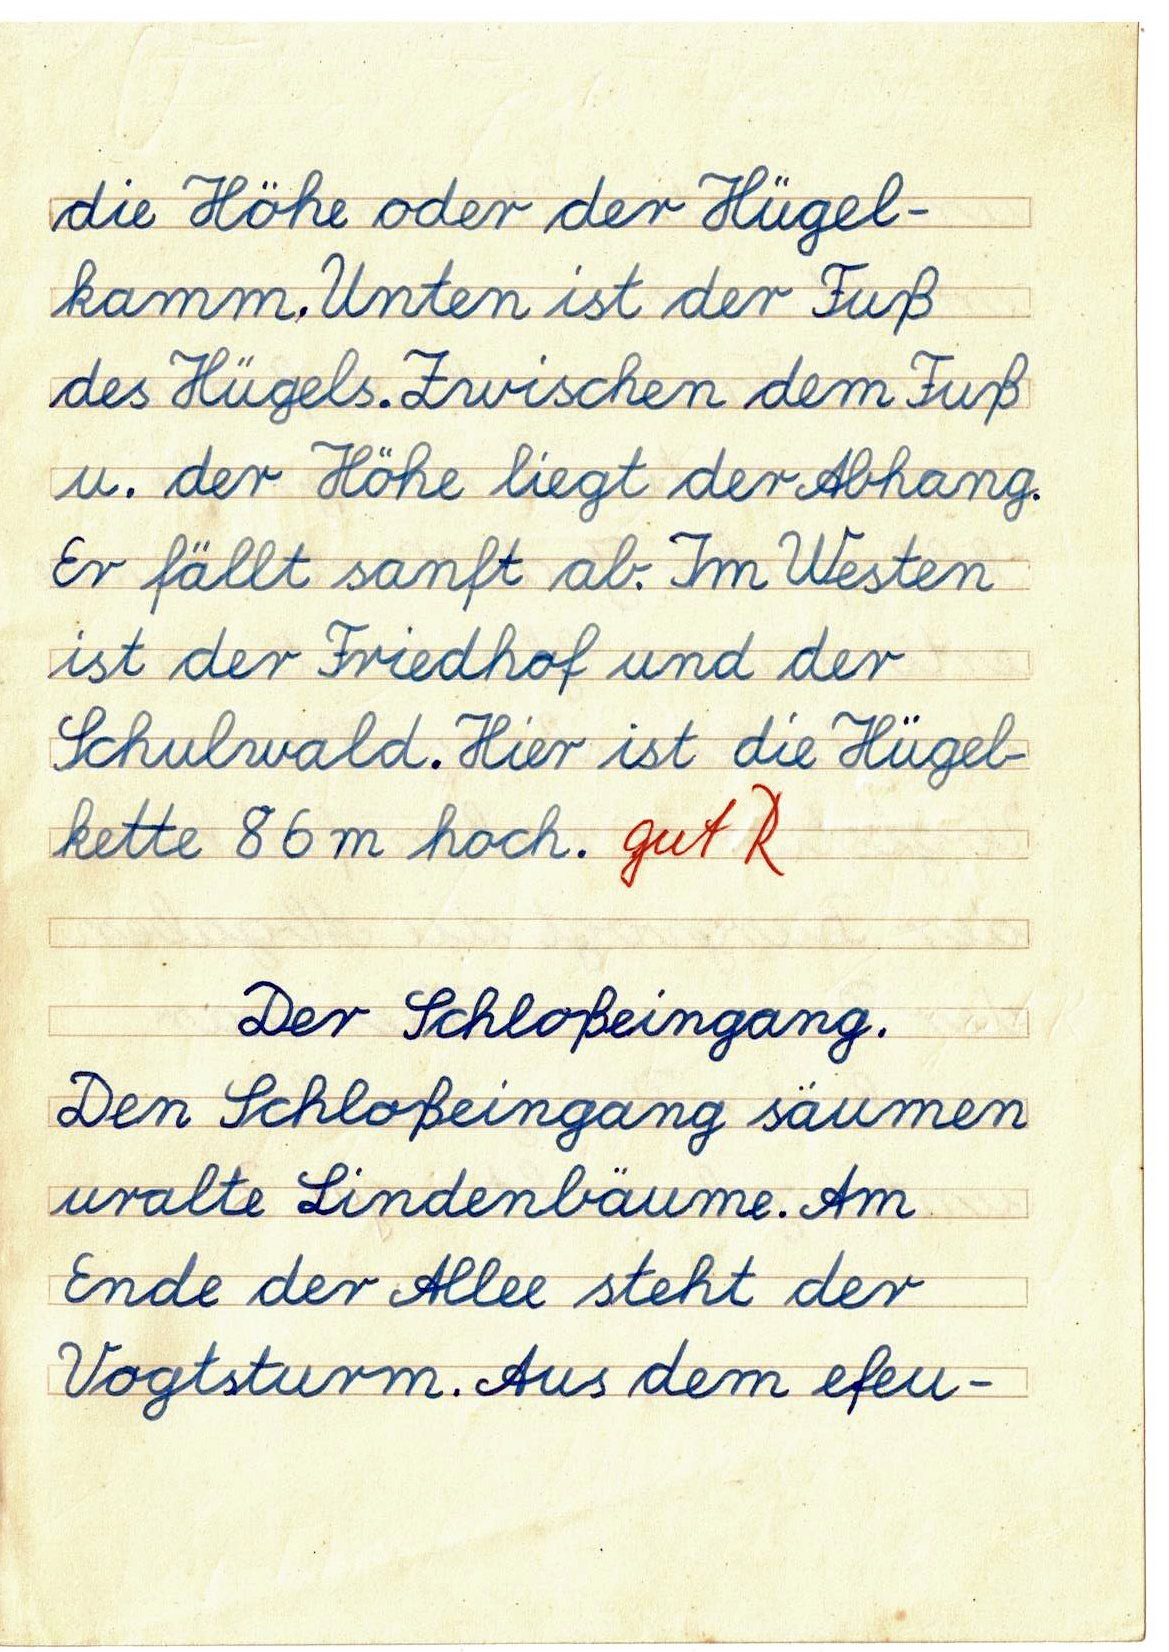 die Höhe oder der Hügel-
kamm. Unten ist der Fuß
des Hügels. Zwischen dem Fuß
u. der Höhe liegt der Abhang.
Er fällt sanft ab. Im Westen
ist der Friedhof und der
Schulwald. Hier ist die Hügel-
kette 86 m hoch. gut R
Der Schloßeingang.
Den Schloßeingang säumen
uralte Lindenbäume. Am
Ende der Allee steht der
Vogtsturm. Aus dem efeu-